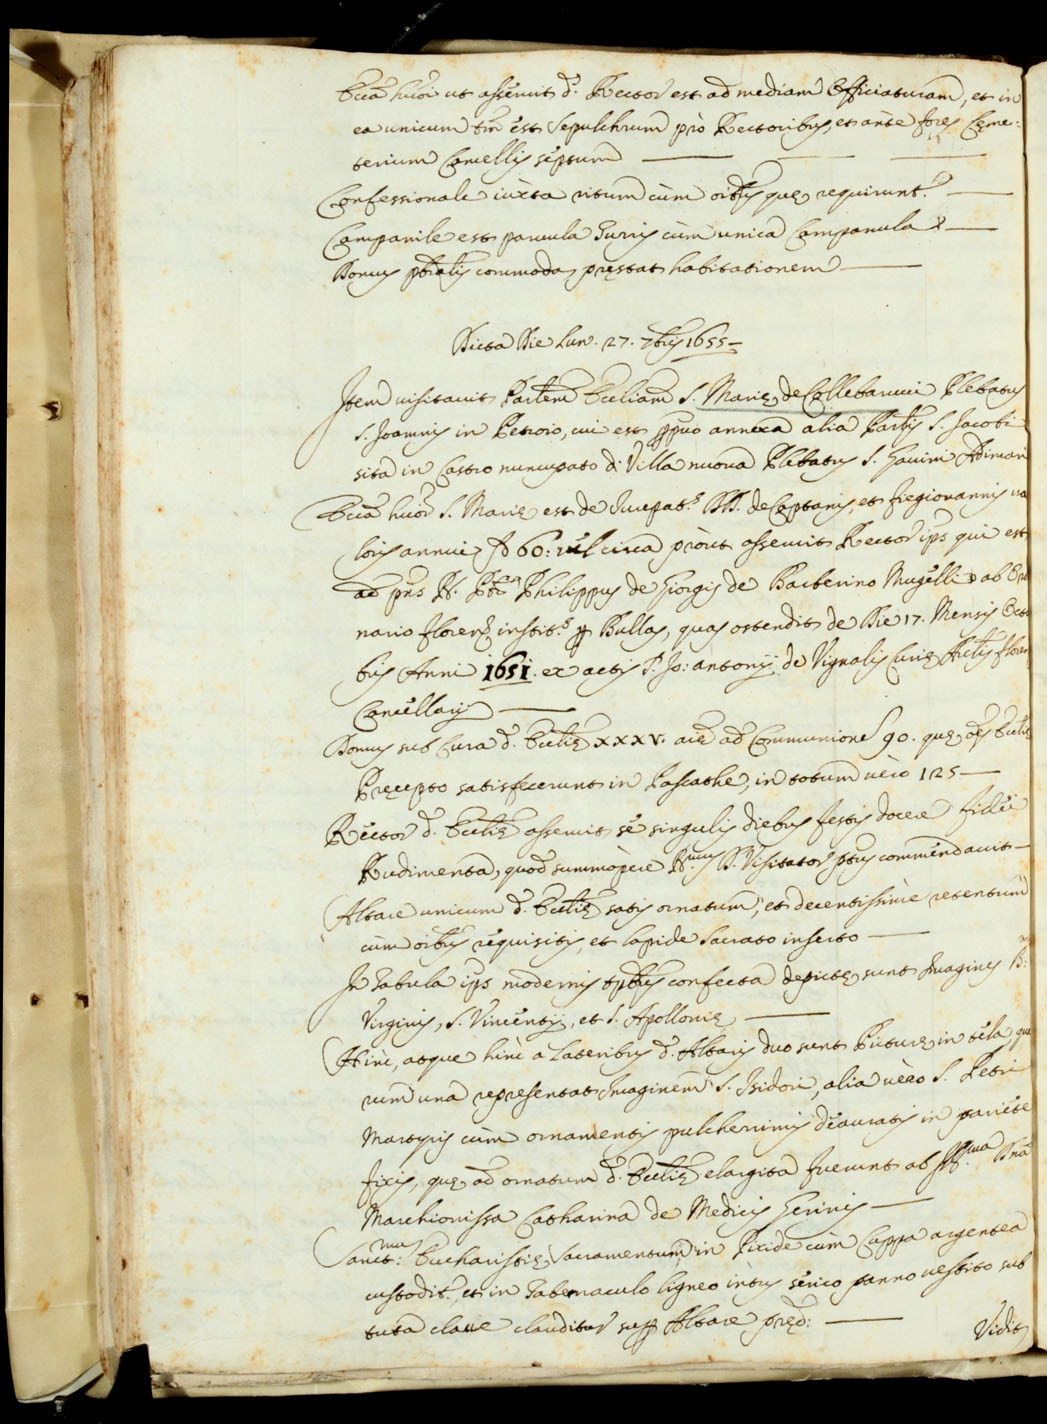 Ecc.a huiusmodi ut asseruit d. Rector est ad mediam Officiaturam, et in
ea unicum tm est Sepulchrum prò Rectoribus, et ante fores Cęme:
terium Cancellis septum
Confessionale iuxta ritum cùm oibus quę requirunt.r
Campanile est parvula Turris cùm unica Campanula
Domus pbralis commodą pręstat habitationem
Dicta Die Lun. 27. 7bris 1655
Item visitavit Partem Eccliam S. Marię de Collebarucci Plebatus
S. Joannis in Petroio, cui est ppuo annexa alia Partis S. Jacobi
sita in Castro nuncupato di Villa nuova Plebatus S. Gavini Adimari
Ecc.a S. Marię est de Iurepat.s DD. de Cattanis, et fregiovannis va
loris annui 60: circa pròut asseruit Rector ips qui est
ad pns R. Philippus de Giorgis de Barberino Mugelli ab Ordi
nario floren. instit.s p Bullas, quas ostendit de Die 17. Mensis Octo
bris Anni 1651. ex actis S. Jo: Antonij de Vignalis Curię floren
Cancellarij
Domus sub Cura d. Ecclię XXXV. aię ad Communione 90. quę oes Ecclię
Pręcepto satisfecerunt in Pascathe, in totum vèro 125
Rector d. Ecclię asseruit sè singulis diebus festis docere fidei
Rudimenta, quod summòpere R.mus D. Visitator commendavit
Altare unicum d. Ecclię satis ornatum, et decentissimè retentum
cùm oibus requisitis, et lapide Sacrato inserto
In Tabula ips modernis tpbus confecta depictę sunt Imagines B:
Virginis, S. Vincentij, et S. Apollonię
Hinc, atque hinc a Lateribus d. Altaris duo sunt Picturę in tela, qua
rum una repręsentat Imaginem S. Isidori, alia vèro S. Petri
Martyris cùm ornamentis pulcherrimis deauratis in pariete
fixis, quę ad ornatum d. Ecclię elargita fuerunt ab Ill.ma Dna
Marchionissa Catharina de Medicis Gerinis
Sanct.mum Eucharistię Sacramentum in Pixide cùm Cuppa argentea
custodit.r, et in Tabernaculo ligneo intus serico panno vestito sub
tuta clave clauditur supp Altare pręd:
Vidit